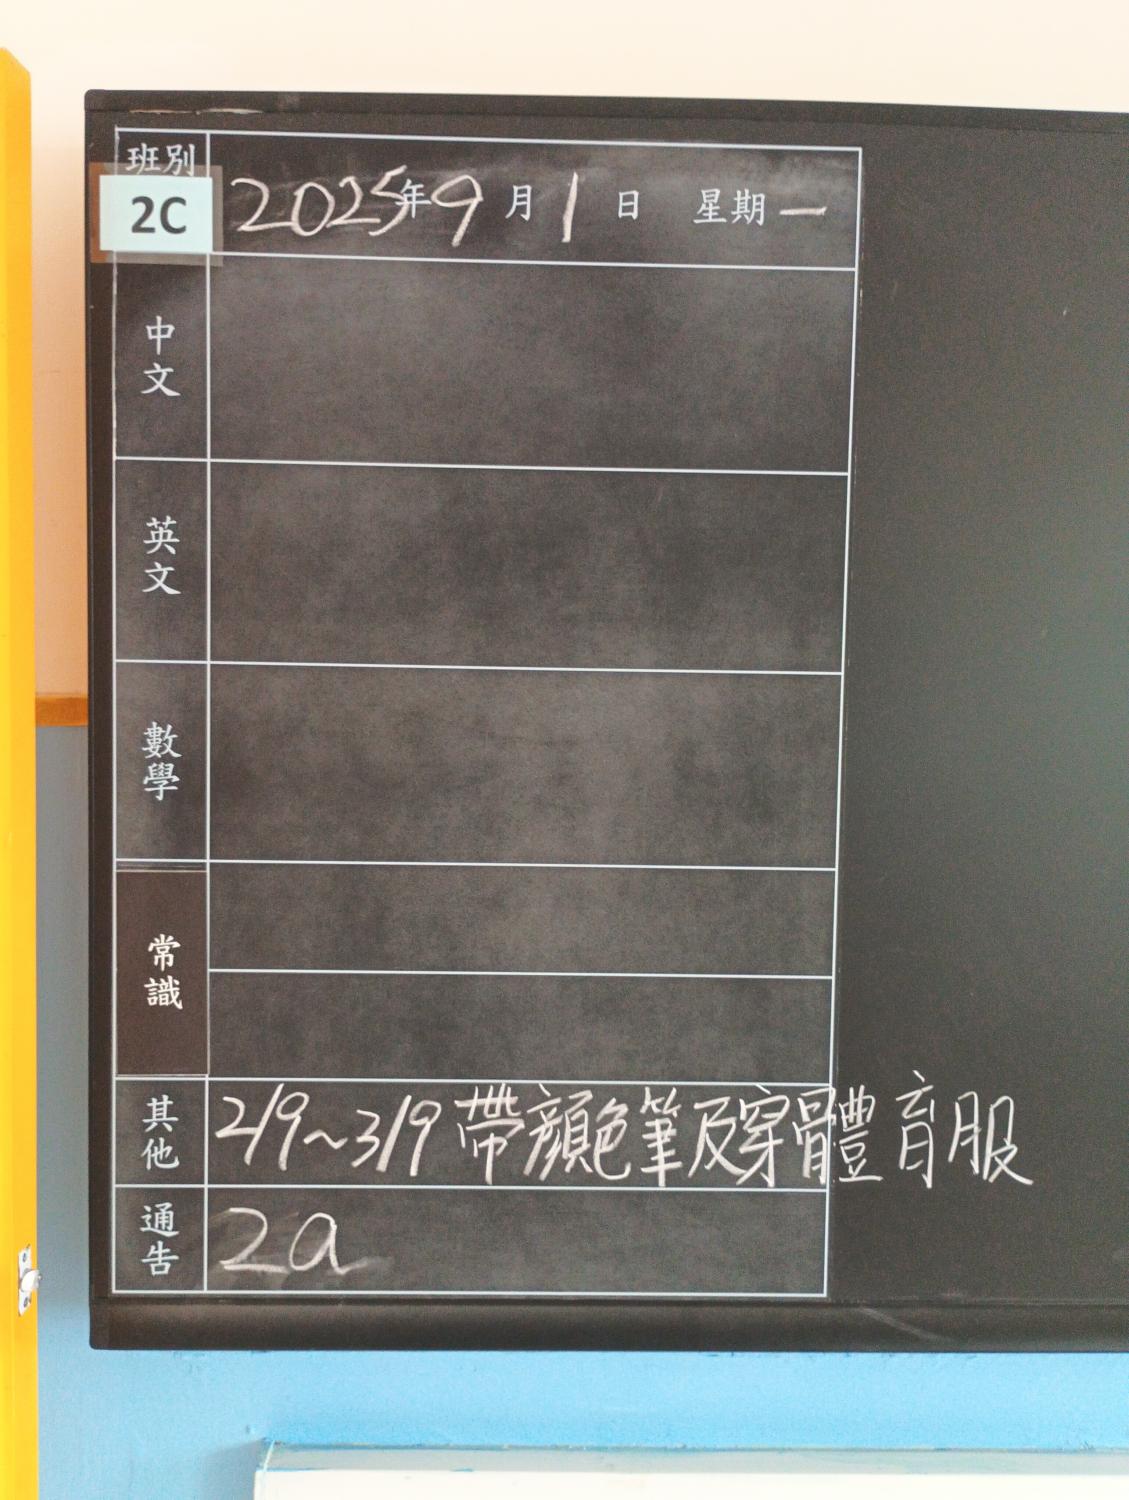 班別
2C
2025年9月1日 星期一
中文
英文
數學
常識
其他 2/9~3/9 帶顏色筆及穿體育服
通告 2a